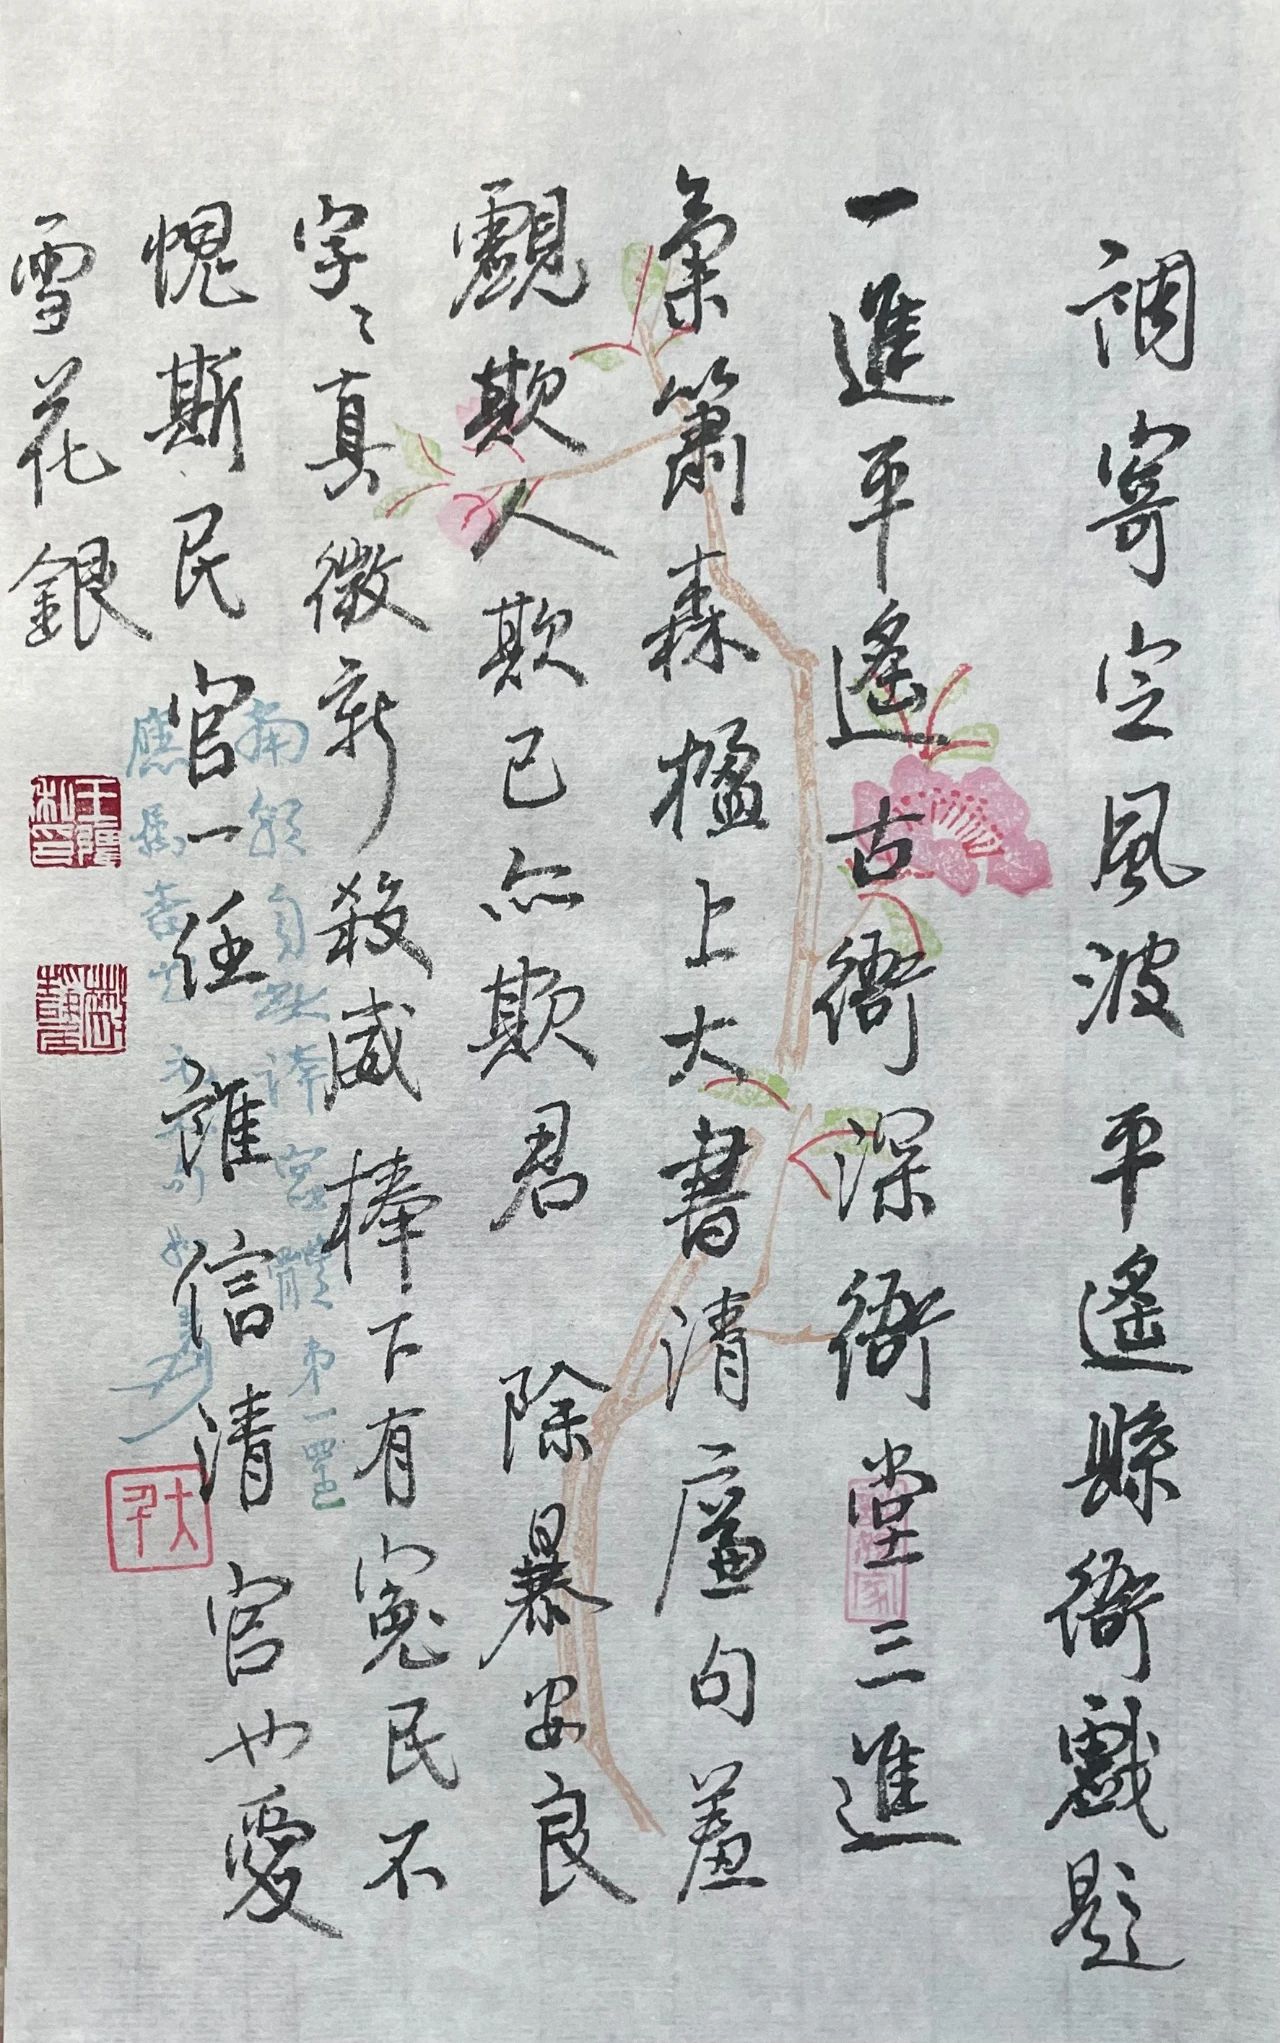 調寄定風波 平遙縣衙戲題
一進平遙古衙深衙堂三進
氣簫森楹上大書清廉句羞
覼欺人欺己亦欺君 除暴安良
字〻真徽新殺威棒下有冤民不
愧斯民官一任誰信清官也愛
雪花銀